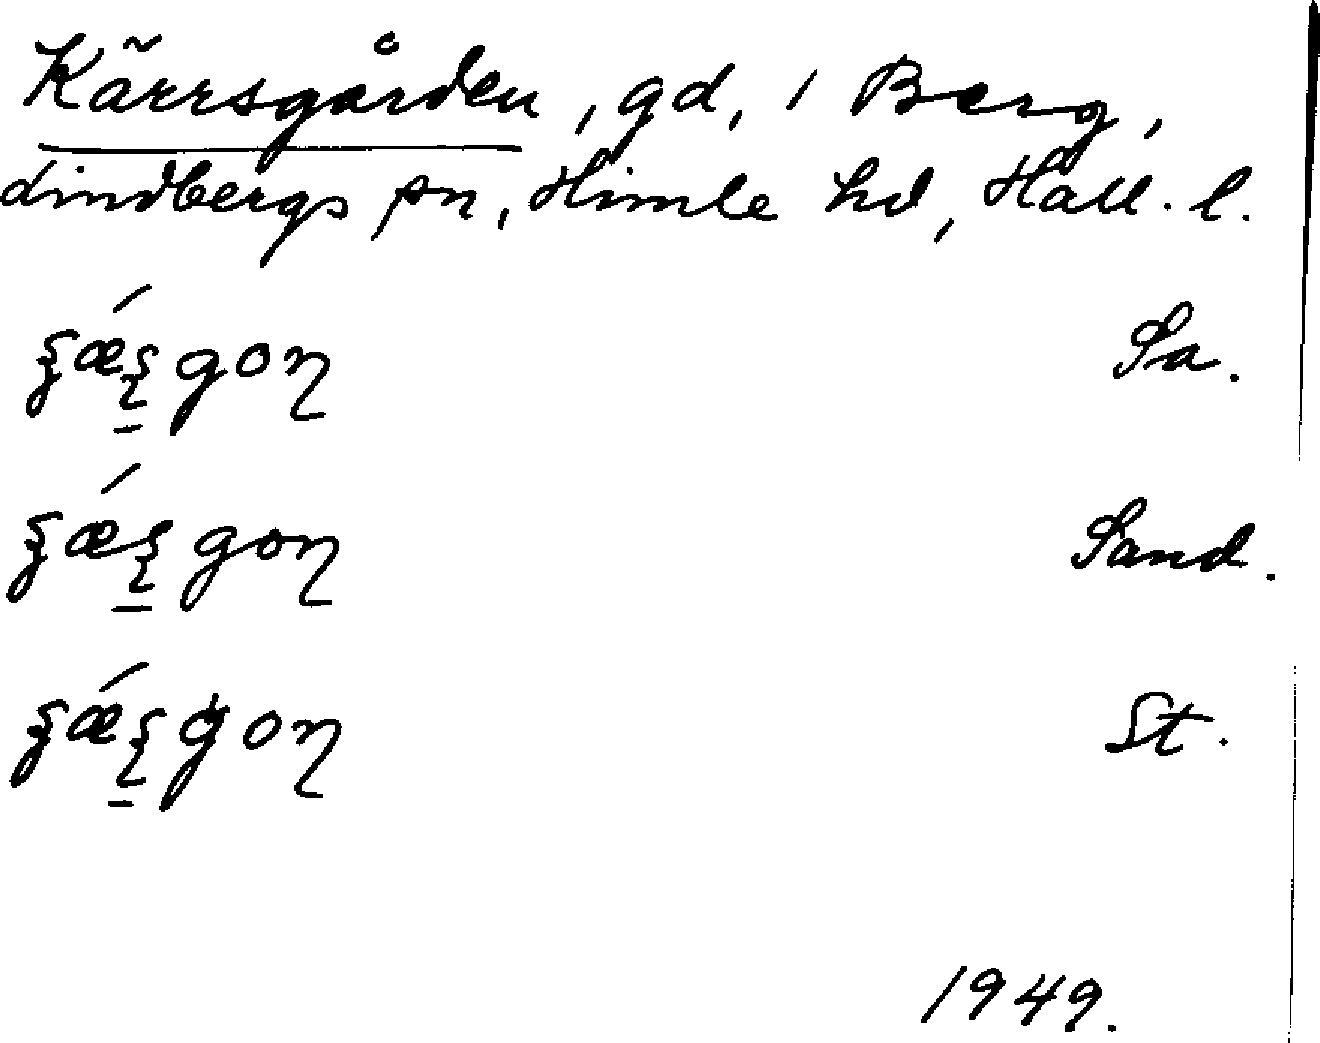 Kärrsgården, gd, i Berg,
Lindbergs sn, Himle hd, Hall. l.
Sa.
Sand.
St.
1949.